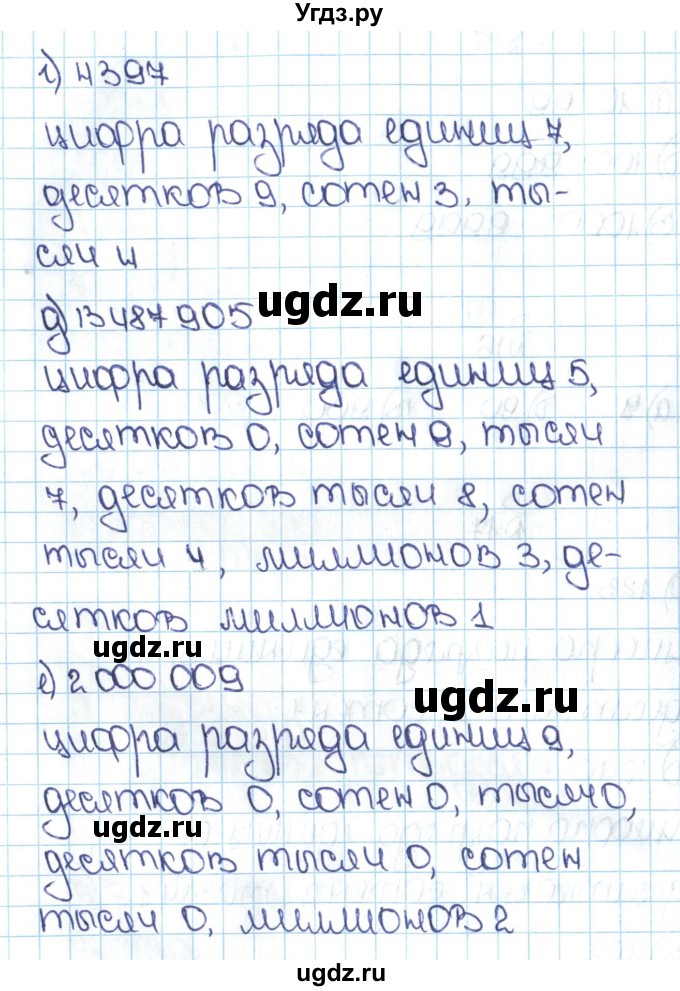 Угдз.ру
г) 4397
цифра разряда единиц 7,
десятков 9, сотен 3, ты-
сяч 4
ugdz.ru
д) 13 487 905
цифра разряда единиц 5,
десятков 0, сотен 9, тысяч
7, десятков тысяч 8, сотен
тысяч 4, миллионов 3, де-
сятков миллионов 1
ugdz.ru
е) 2 000 009
ugdz.ru
цифра разряда единиц 9,
десятков 0, сотен 0, тысяч 0,
ugdz.ru
десятков тысяч 0, сотен
тысяч 0, миллионов 2
ugdz.ru